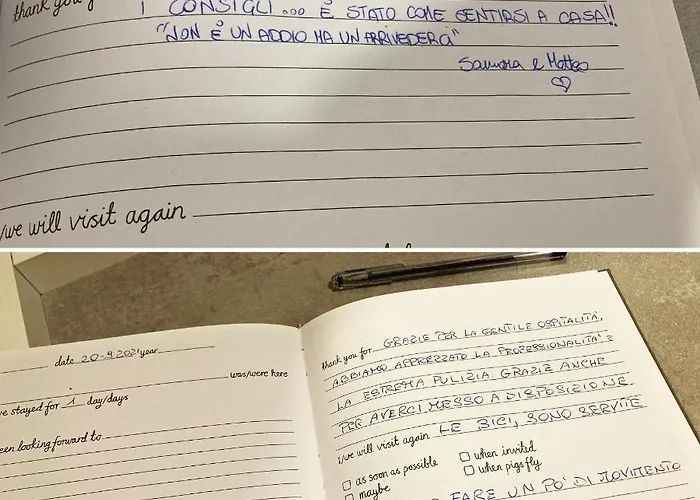 thank you f
I CONSIGLI... È STATO COME SENTIRSI A CASA!!
"NON È UN ADDIO MA UN ARRIVEDERCI"
e Matteo
/we will visit again
date 20-9 2021 year
was/were here
ve stayed for 1 day/days
een looking forward to
thank you for GRAZIE PER LA GENTILE OSPITALITÀ.
ABBIAMO APPREZZATO LA PROFESSIONALITÀ E
LA ESTREMA PULIZIA. GRAZIE ANCHE
PER AVERCI MESSO A DISPOSIZIONE
i/we will visit again LE BICI, SONO SERVITE
as soon as possible
when invited
maybe
when pigs fly
FARE UN PO' DI MOVIMENTO